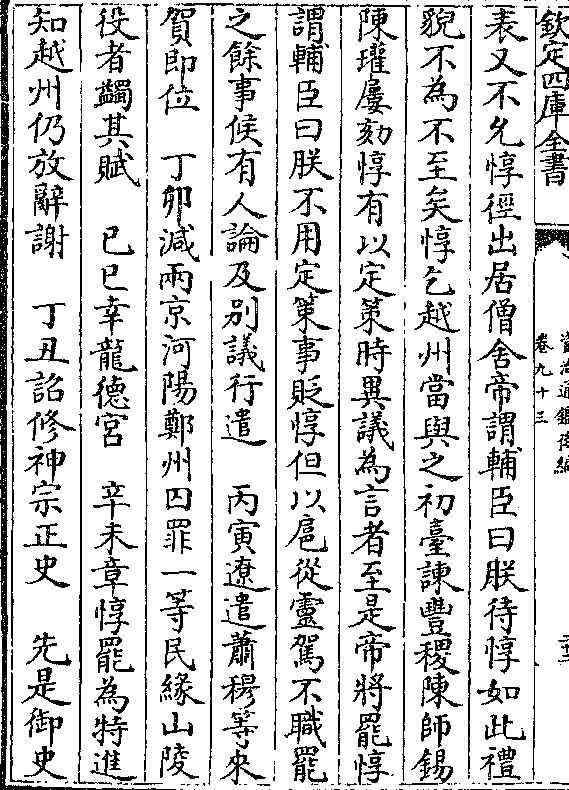 欽定四庫全書
資治通鑑後編
卷九十三
表又不允惇徑出居僧舍帝謂輔臣曰朕待惇如此禮
貌不為不至矣惇乞越州當與之初臺諫豐稷陳師錫
陳瓘屢劾惇有以定策時異議為言者至是帝將罷惇
謂輔臣曰朕不用定策事貶惇但以扈從靈駕不職罷
之餘事候有人論及别議行遣　丙寅遼遣蕭穆等來
賀即位　丁卯減兩京河陽鄭州囚罪一等民緣山陵
役者蠲其賦　己巳幸龍德宮　辛未章惇罷為特進
知越州仍放辭謝　丁丑詔修神宗正史　先是御史